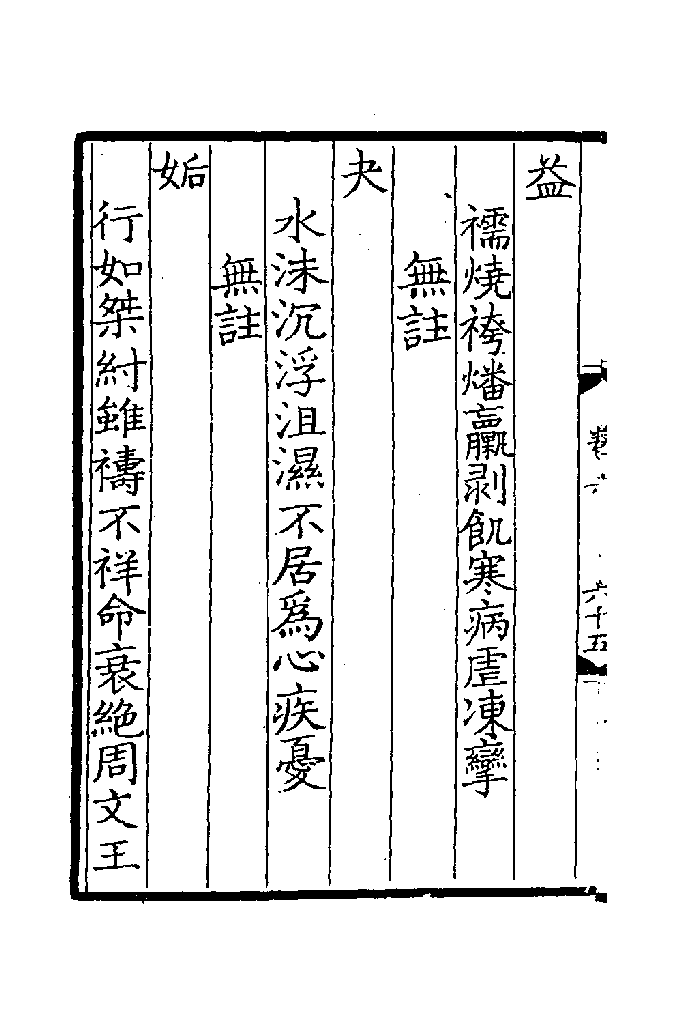 益
襦燒袴燔羸剥飢寒病虐凍攣
無註
夬
水沫沉浮沮濕不居爲心疾憂
無註
姤
行如桀紂雖禱不祥命衰絶周文王
卷六
六十五